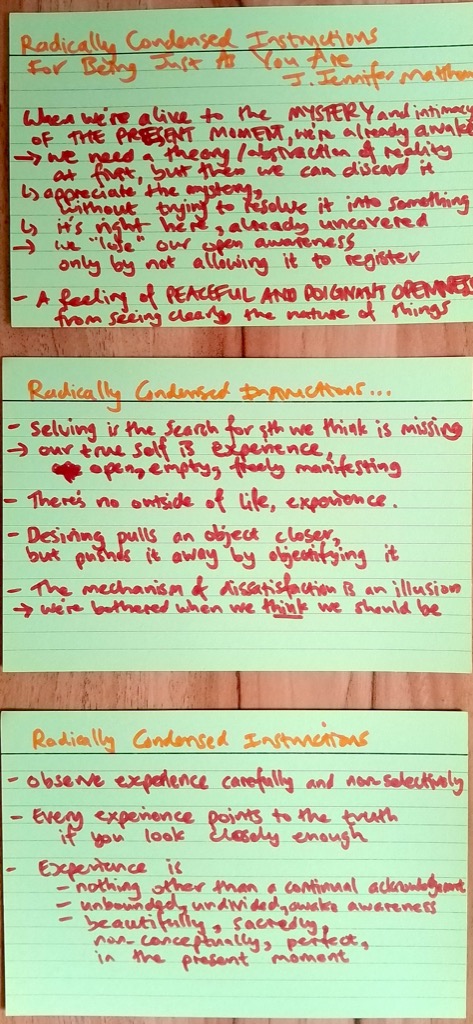 Radically Condensed Instructions
For Being Just As You Are
J. Jennifer Matthew
When we're alive to the MYSTERY and intimacy
OF THE PRESENT MOMENT, we're already awake
→ we need a theory/abstraction of reality
at first, but then we can discard it
↳ appreciate the mystery,
without trying to resolve it into something
↳ it's right here, already uncovered
→ we "lose" our open awareness
only by not allowing it to register
- A feeling of PEACEFUL AND POIGNANT OPENNESS
from seeing clearly the nature of things
Radically Condensed Instructions...
- Selving is the search for sth we think is missing
→ our true self IS experience,
open, empty, freely manifesting
- There's no outside of life, experience.
- Desiring pulls an object closer,
but pushes it away by objectifying it
- The mechanism of dissatisfaction is an illusion
→ we're bothered when we think we should be
Radically Condensed Instructions
- Observe experience carefully and non-selectively
- Every experience points to the truth
if you look closely enough
- Experience is
- nothing other than a continual acknowledgement
- unbounded, undivided, awake awareness
- beautifully, sacredly,
non-conceptually, perfect,
in the present moment